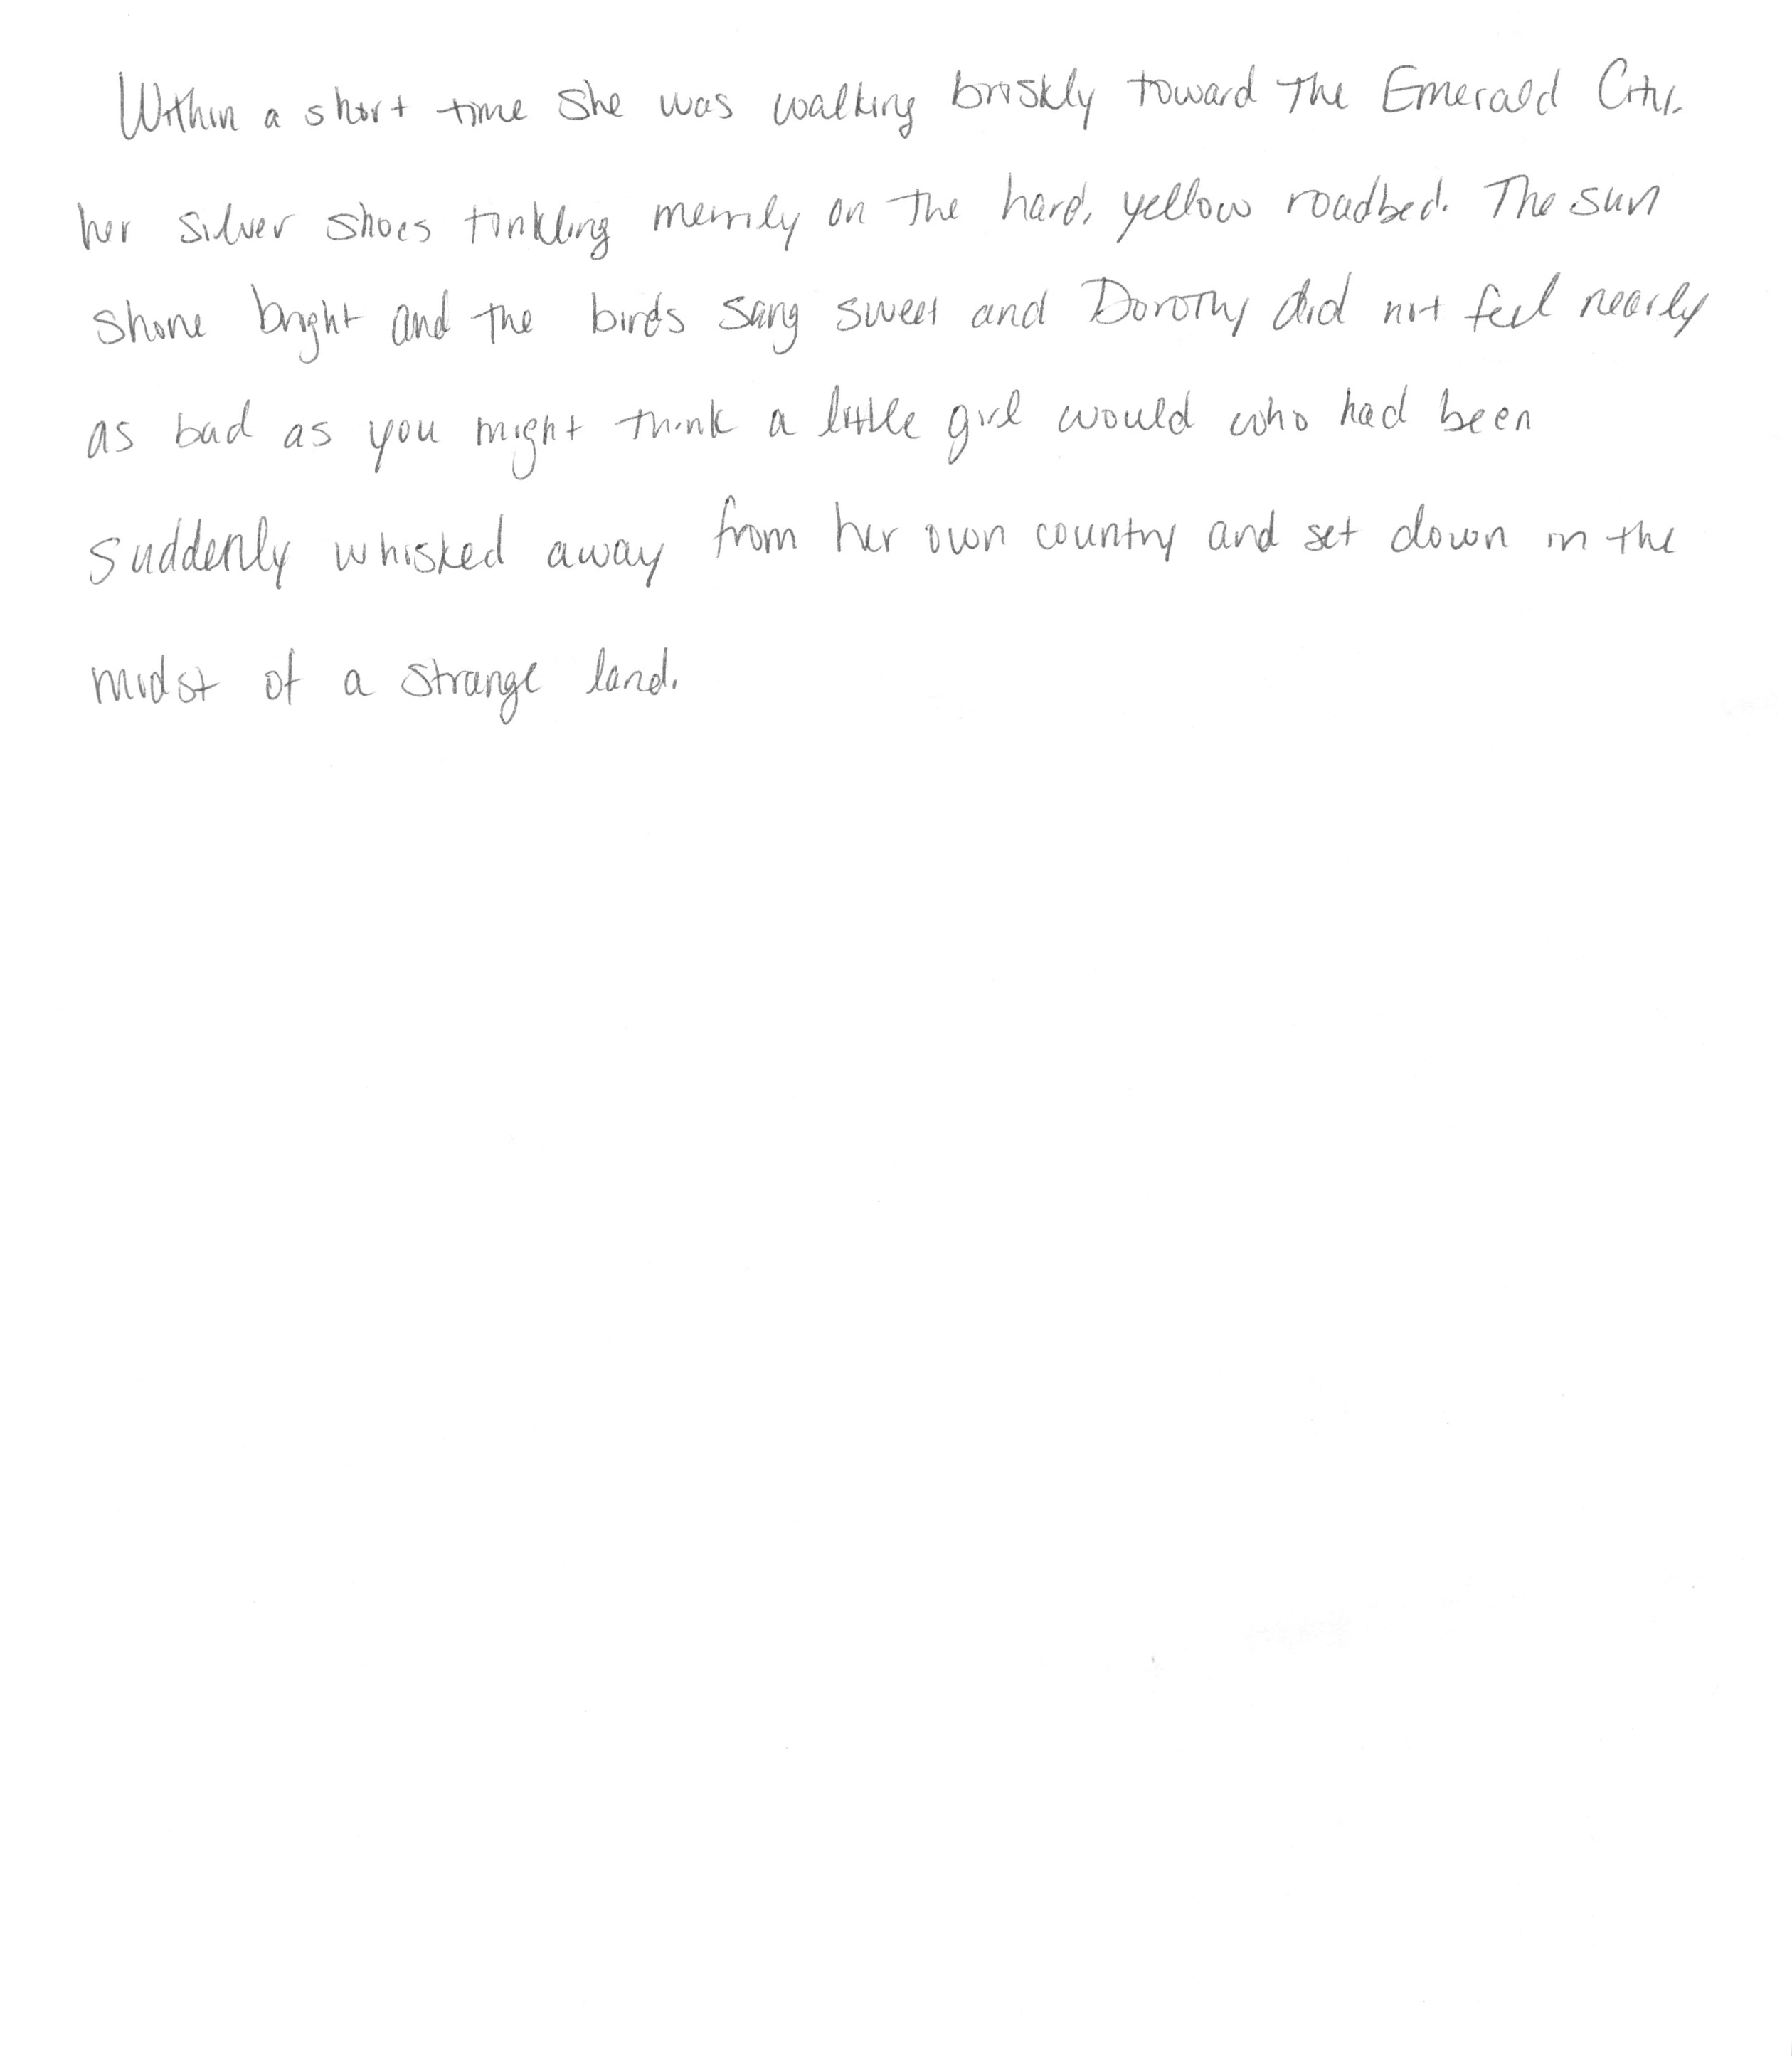 Within a short time she was walking briskly toward the Emerald City,
her silver shoes tinkling merrily on the hard, yellow roadbed. The sun
shone bright and the birds sang sweet and Dorothy did not feel nearly
as bad as you might think a little girl would who had been
suddenly whisked away from her own country and set down in the
midst of a strange land.